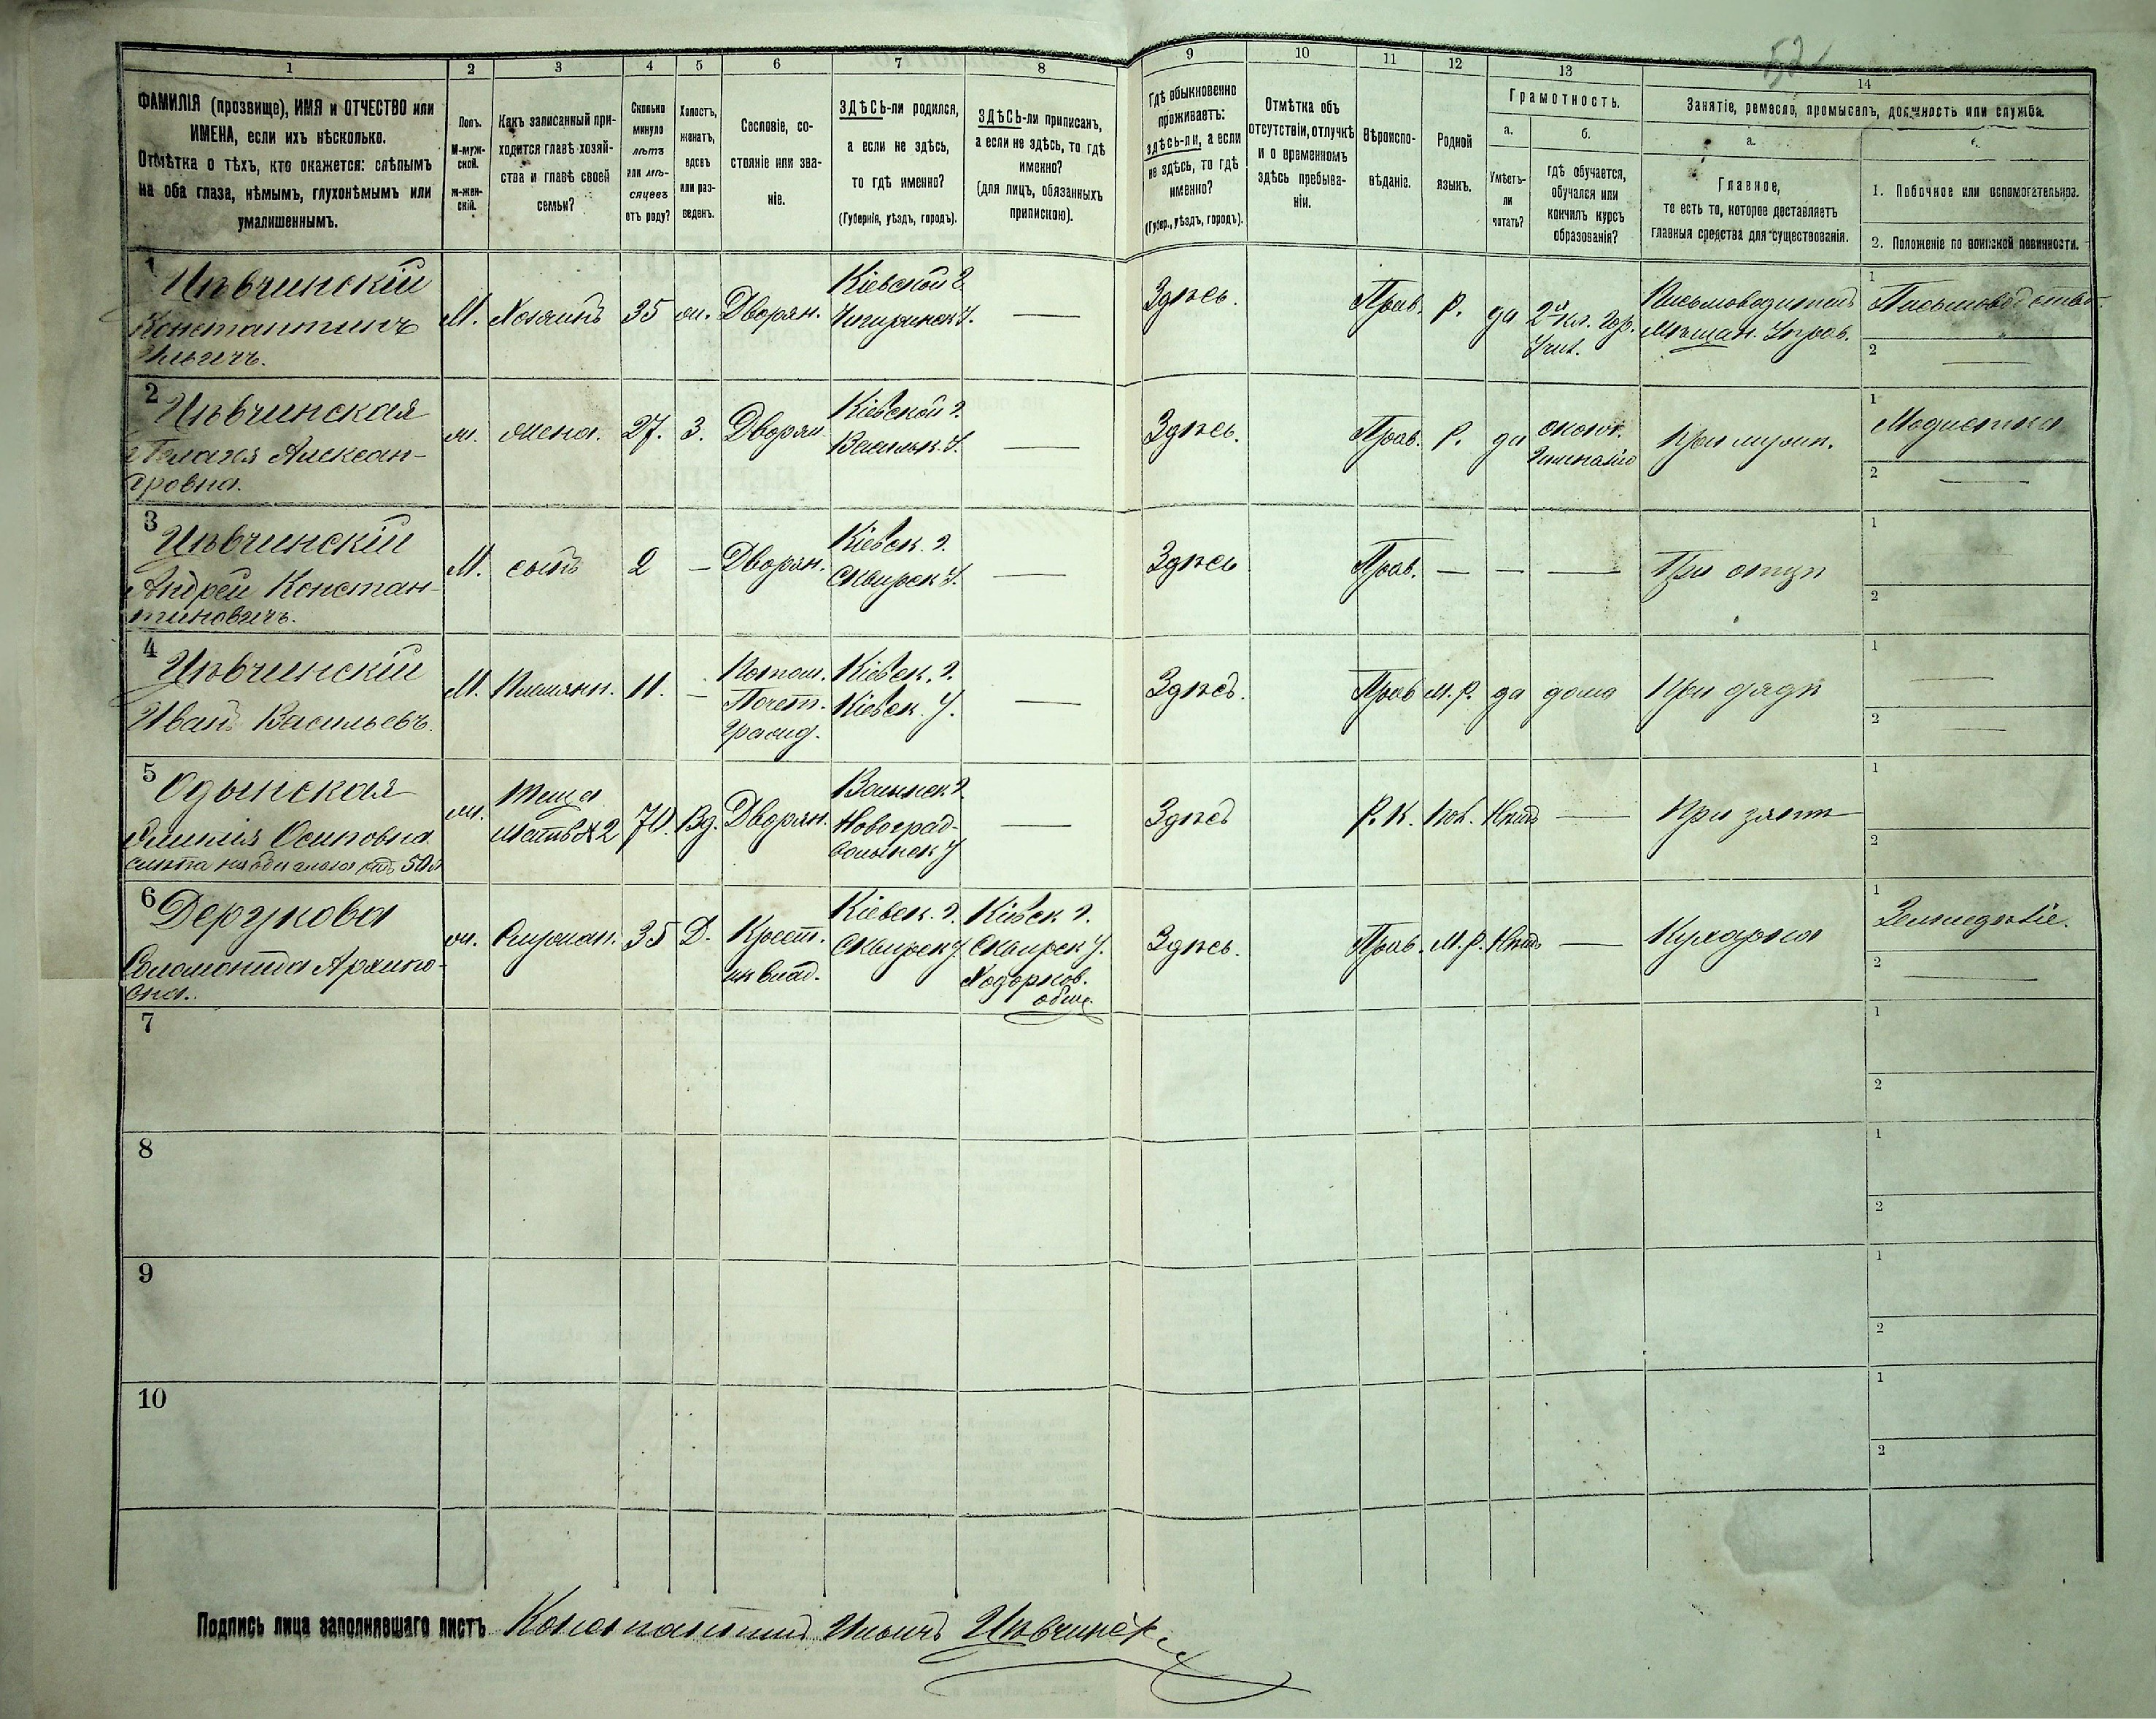 52
1 2 3 4 5 6 7 8 9 10 11 12 13 14
ФАМИЛІЯ (прозвище), ИМЯ и ОТЧЕСТВО или
ИМЕНА, если ихъ нѣсколько.
Отмѣтка о тѣхъ, кто окажется: слѣпымъ
на оба глаза, нѣмымъ, глухонѣмымъ или
умалишеннымъ.
Полъ.
М-муж-
ской.
ж-жен-
скій.
Какъ записанный при-
ходится главѣ хозяй-
ства и главѣ своей
семьи?
Сколько
минуло
лѣтъ
или мѣ-
сяцевъ
отъ роду?
Холостъ,
женатъ,
вдовъ
или раз-
веденъ.
Сословіе, со-
стояніе или зва-
ніе.
ЗДѢСЬ-ли родился,
а если не здѣсь,
то гдѣ именно?
(Губернія, уѣздъ, городъ).
ЗДѢСЬ-ли приписанъ,
а если не здѣсь, то гдѣ
именно?
(для лицъ, обязанныхъ
припискою).
Гдѣ обыкновенно
проживаетъ:
здѣсь-ли, а если
не здѣсь, то гдѣ
именно?
(Губер., уѣздъ, городъ).
Отмѣтка объ
отсутствіи, отлучкѣ
и о временномъ
здѣсь пребыва-
ніи.
Вѣроиспо-
вѣданіе.
Родной
языкъ.
Грамотность.
а.
Умѣетъ-
ли
читать?
б.
гдѣ обучается,
обучался или
кончилъ курсъ
образованія?
Занятіе, ремесло, промыселъ, должность или служба.
а.
Главное,
то есть то, которое доставляетъ
главныя средства для существованія.
1. Побочное или вспомогательное.
2. Положеніе по воинской повинности.
1
Ивчинскій
Константинъ
Ильичъ.
М.
Хозяинъ
35
ж.
Дворян.
Кіевской г.
Чигиринск. у.
—
Здѣсь.
Прав.
Р.
да
2й кл. Гор.
Учил.
Письмоводитель
Мѣщан. Управ.
1 Письмоводство.
2 —
2
Ивчинская
Пелагія Алексан-
дровна.
ж.
жена.
27.
З.
Дворян
Кіевской г.
Васильк. у.
—
Здѣсь.
Прав.
Р.
да
оконч.
Гимназію
При мужѣ.
1 Модистка
2 —
3
Ивчинскій
Андрей Констан-
тиновичъ.
М.
сынъ
2
—
Дворян.
Кіевск. г.
Сквирск у.
—
Здѣсь
Прав.
—
—
—
При отцѣ
1
2
4
Ивчинскій
Иванъ Васильевъ.
М.
Племянн.
11.
—
Потом.
Почет.
гражд.
Кіевск. г.
Кіевск. у.
—
Здѣсь.
Прав
М. Р.
да
дома
При дядѣ
1 —
2 —
5
Одынская
Эмилія Осиповна
слѣпа на оба глаза отъ 50 л
ж.
Теща
Мать № 2
70.
Вд.
Дворян.
Волынск г.
Новоград-
волынск у
—
Здѣсь
Р. К.
Пол.
Нѣтъ
—
При зятѣ
1
2
6
Дергукова
Соломонида Архипо-
вна.
ж.
35
Д.
Крест.
из влад.
Кіевск. г.
Сквирск у.
Кіевск г.
Сквирск у.
Ходорков.
общ.
Здѣсь.
Прав.
М. Р.
Нѣтъ
—
Кухарка
1 Земледѣліе.
2 —
7
1
2
8
1
2
9
1
2
10
1
2
Подпись лица заполнявшаго листъ Константинъ Ильичъ Ивчинск